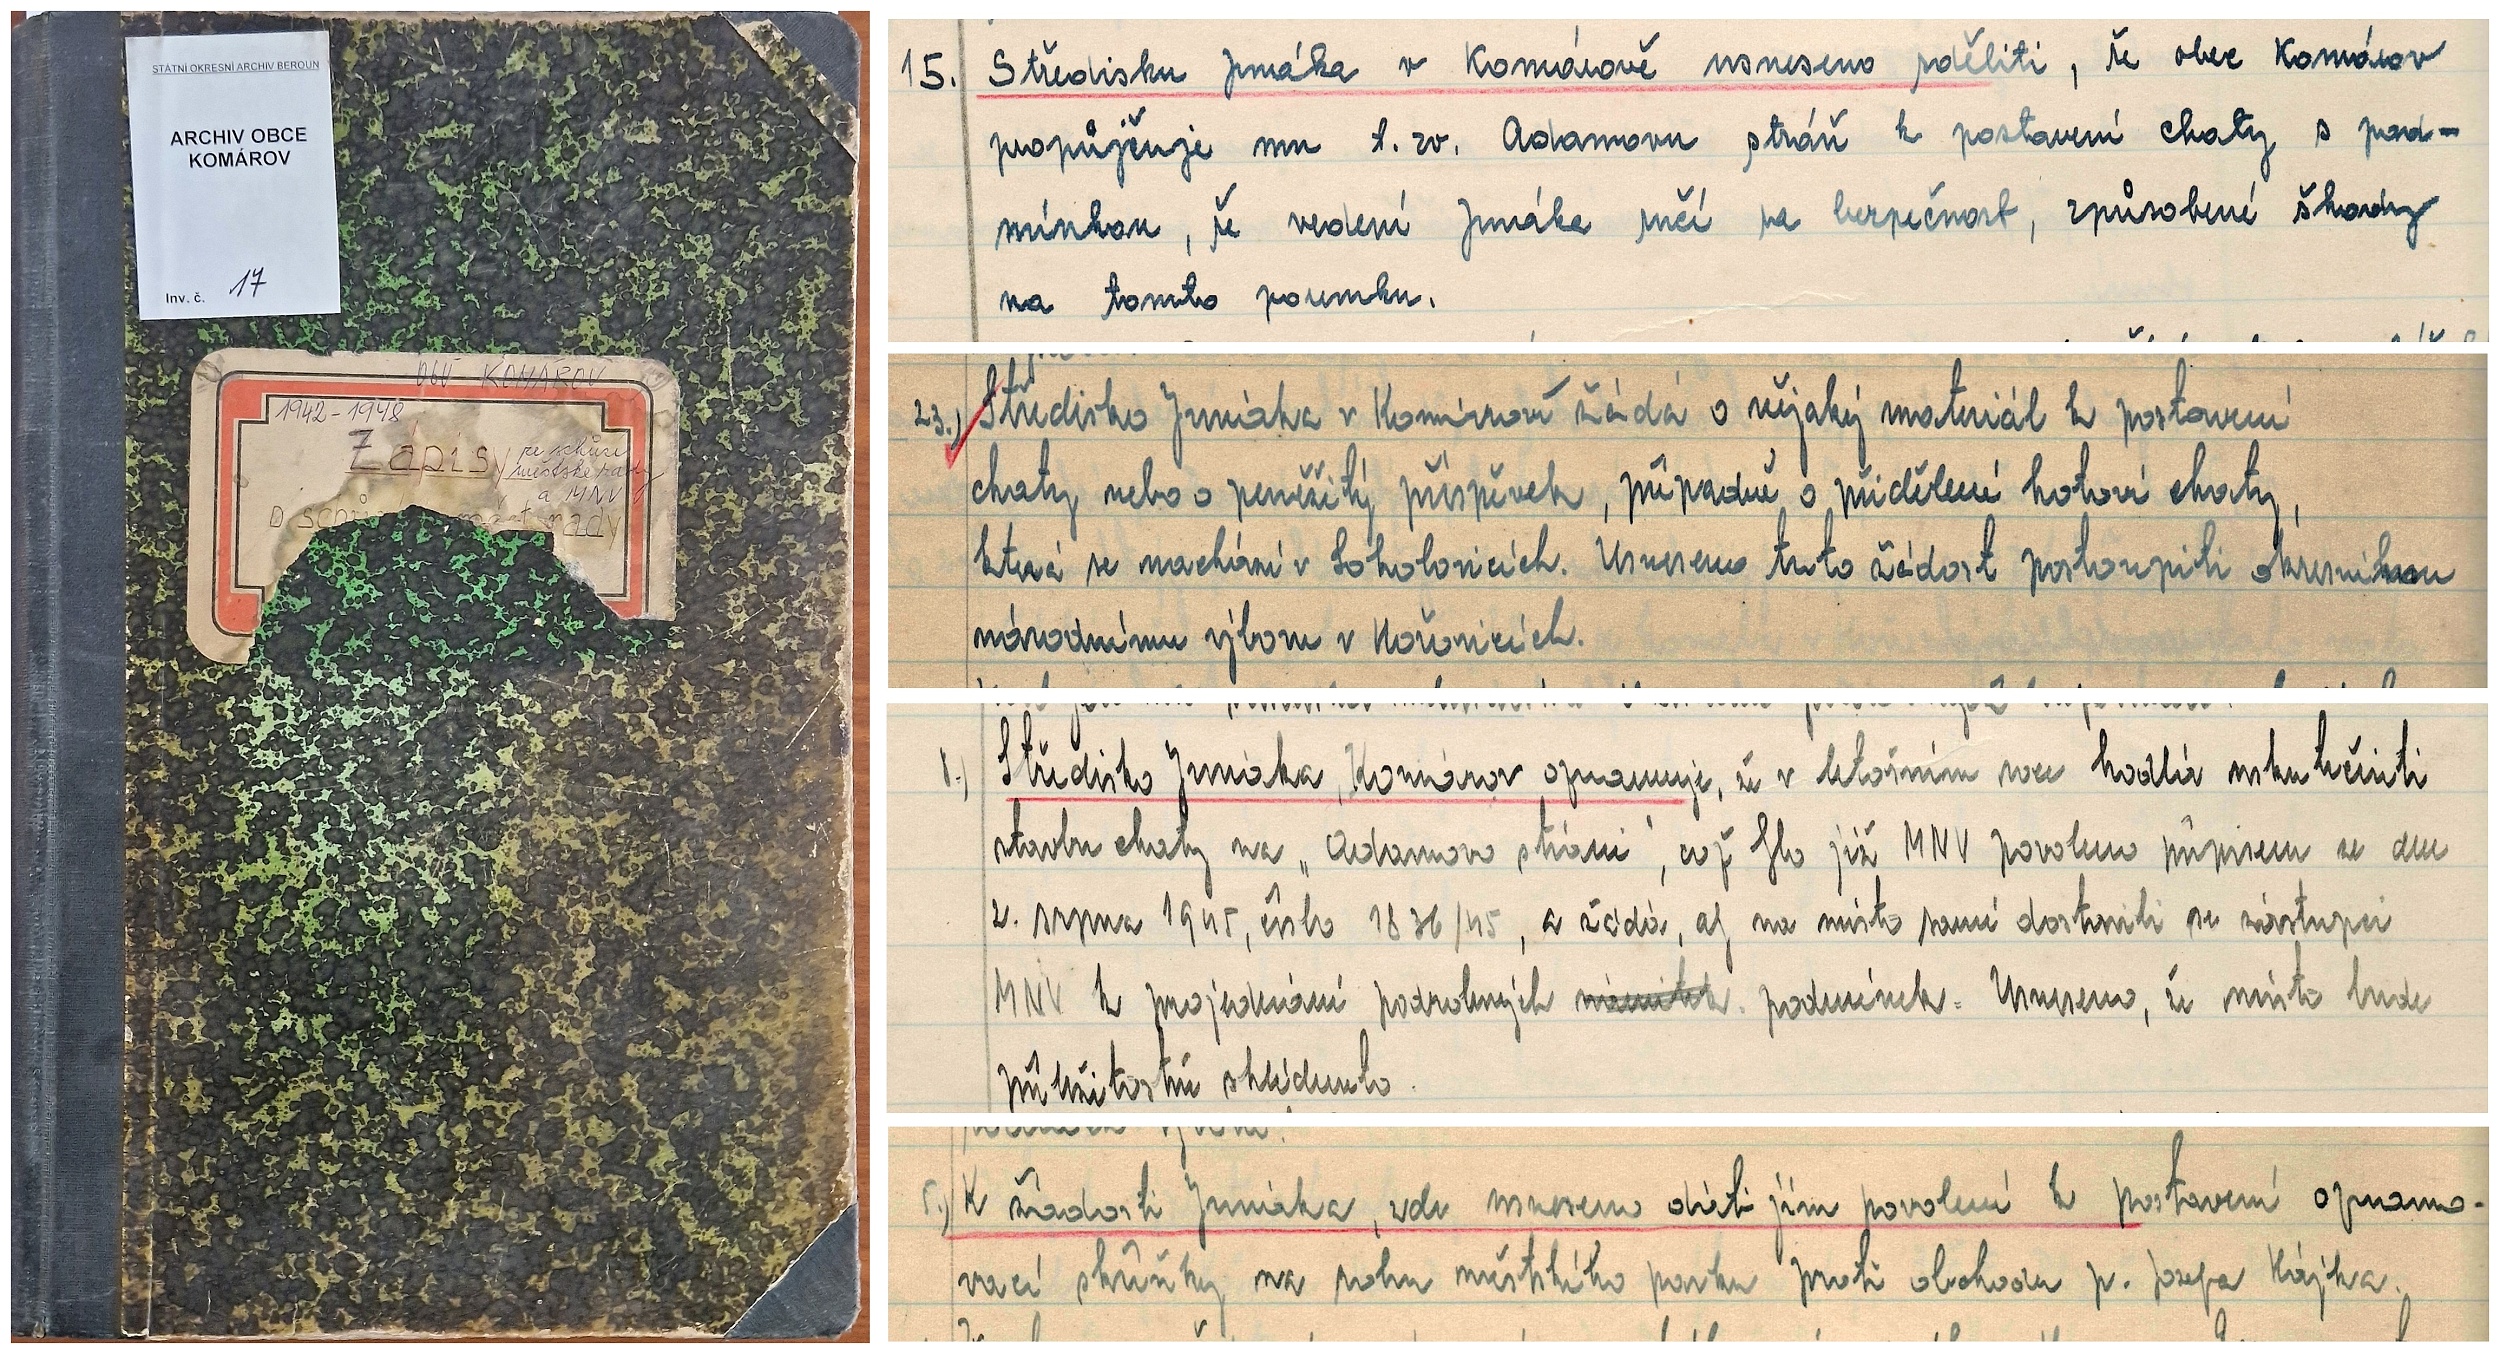 STÁTNÍ OKRESNÍ ARCHIV BEROUN
ARCHIV OBCE
KOMÁROV
Inv. č. 17
KOMÁROV
1942-1948
Zápisy ze schůze
městské rady
a MNV
o schů rady
15. Středisku Junáka v Komárově usneseno sděliti, že obec Komárov
propůjčuje mu t. zv. Adamovu stráň k postavení chaty s pod-
mínkou, že vedení Junáka ručí za bezpečnost, způsobené škody
na tomto pozemku.
23.) Středisko Junáka v Komárově žádá o nějaký materiál k postavení
chaty nebo o peněžitý příspěvek, případně o přidělení hotové chaty,
která se nachází v Soholovicích. Usneseno tuto žádost postoupiti okresnímu
národnímu výboru v Hořovicích.
8.) Středisko Junáka, Komárov oznamuje, že v letošním roce hodlá uskutečniti
stavbu chaty na „Adamovo stráni", což bylo již MNV povoleno přípisem ze dne
2. srpna 1945, číslo 1836/45, a žádá, aj na místo samé dostavili se zástupci
MNV k projednání podrobných podmínek. Usneseno, že místo bude
příležitostně shlédnuto.
5.) K žádosti Junáka, zde usneseno dáti jím povolení k postavení oznamo-
vací skříňky na rohu městského parku proti obchodu p. Josefa Hájka.